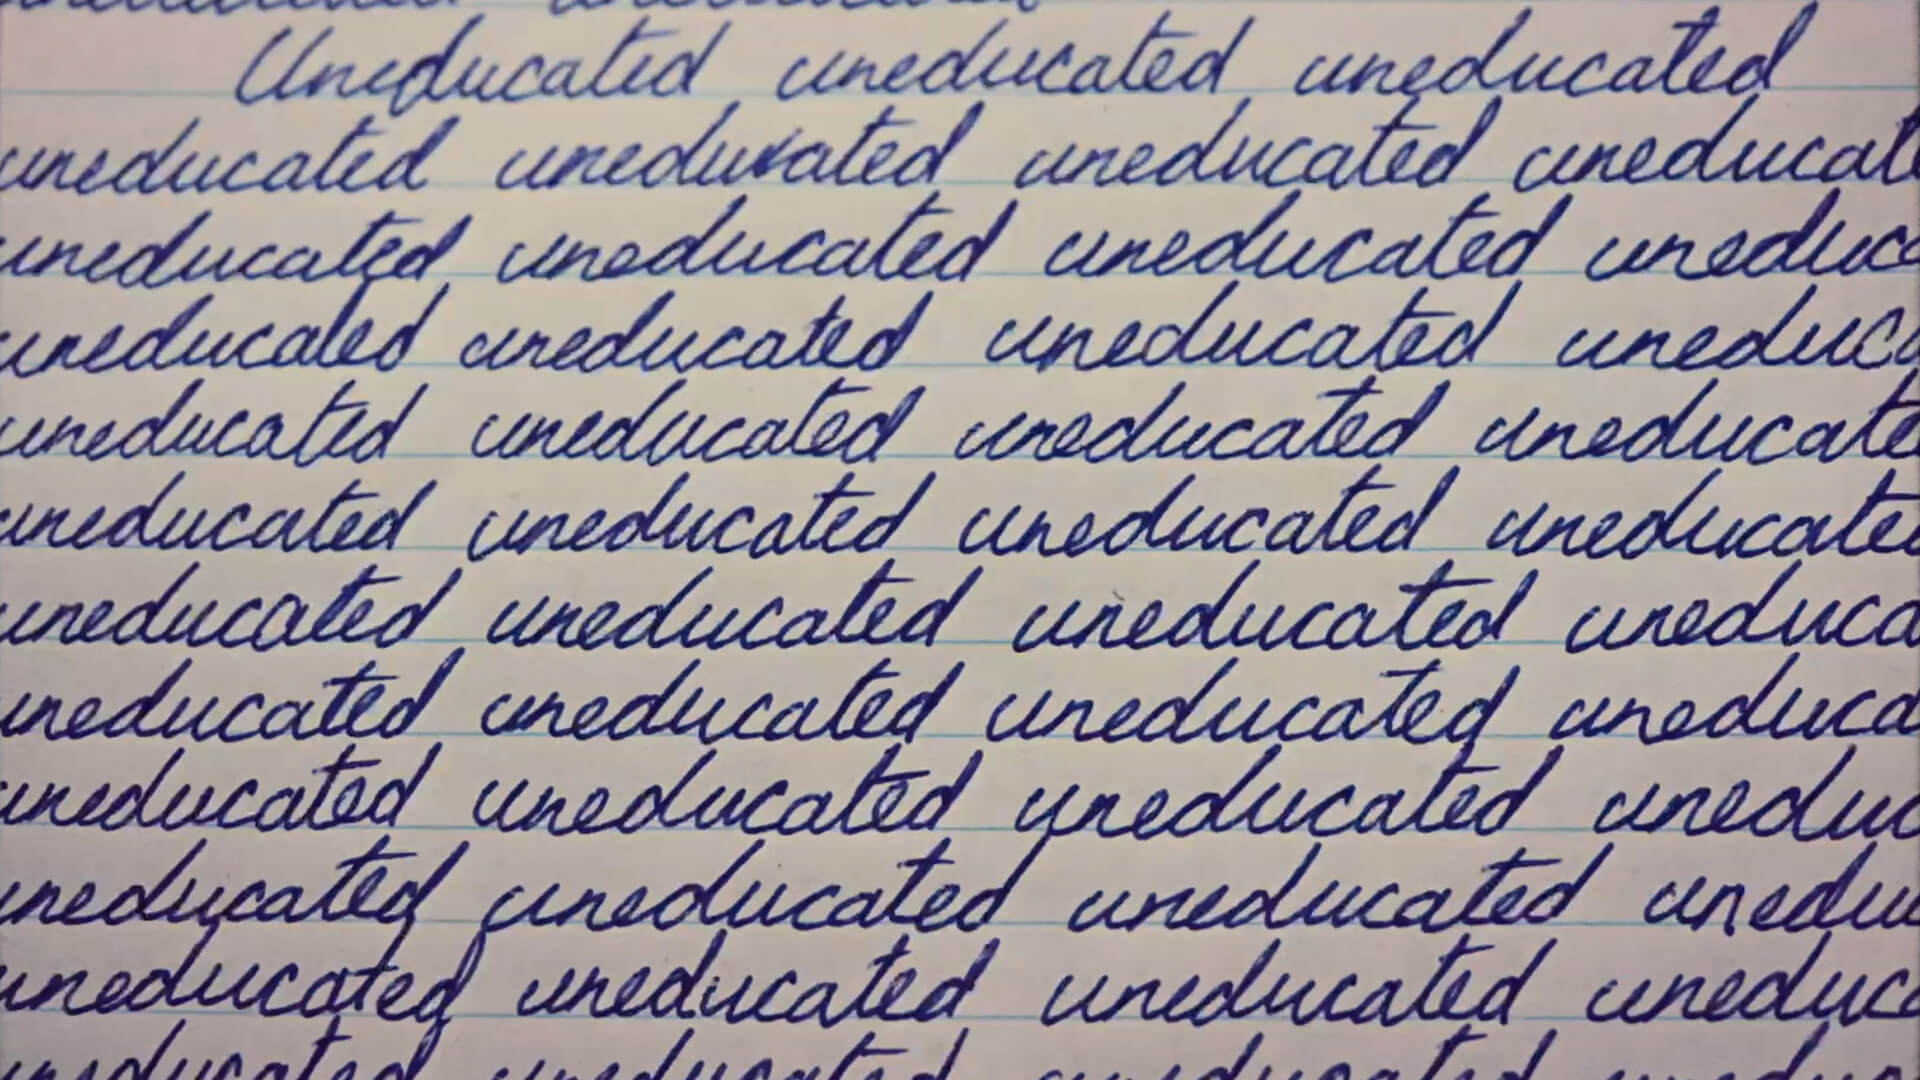 Uneducated uneducated uneducated
uneducated uneducated uneducated uneducate
uneducated uneducated uneducated uneduca
uneducated uneducated uneducated uneduca
uneducated uneducated uneducated uneducate
uneducated uneducated uneducated uneducated
uneducated uneducated uneducated uneduca
uneducated uneducated uneducated uneduca
uneducated uneducated uneducated uneduc
uneducated uneducated uneducated unedu
uneducated uneducated uneducated uneduca
uneducated uneducated uneducated